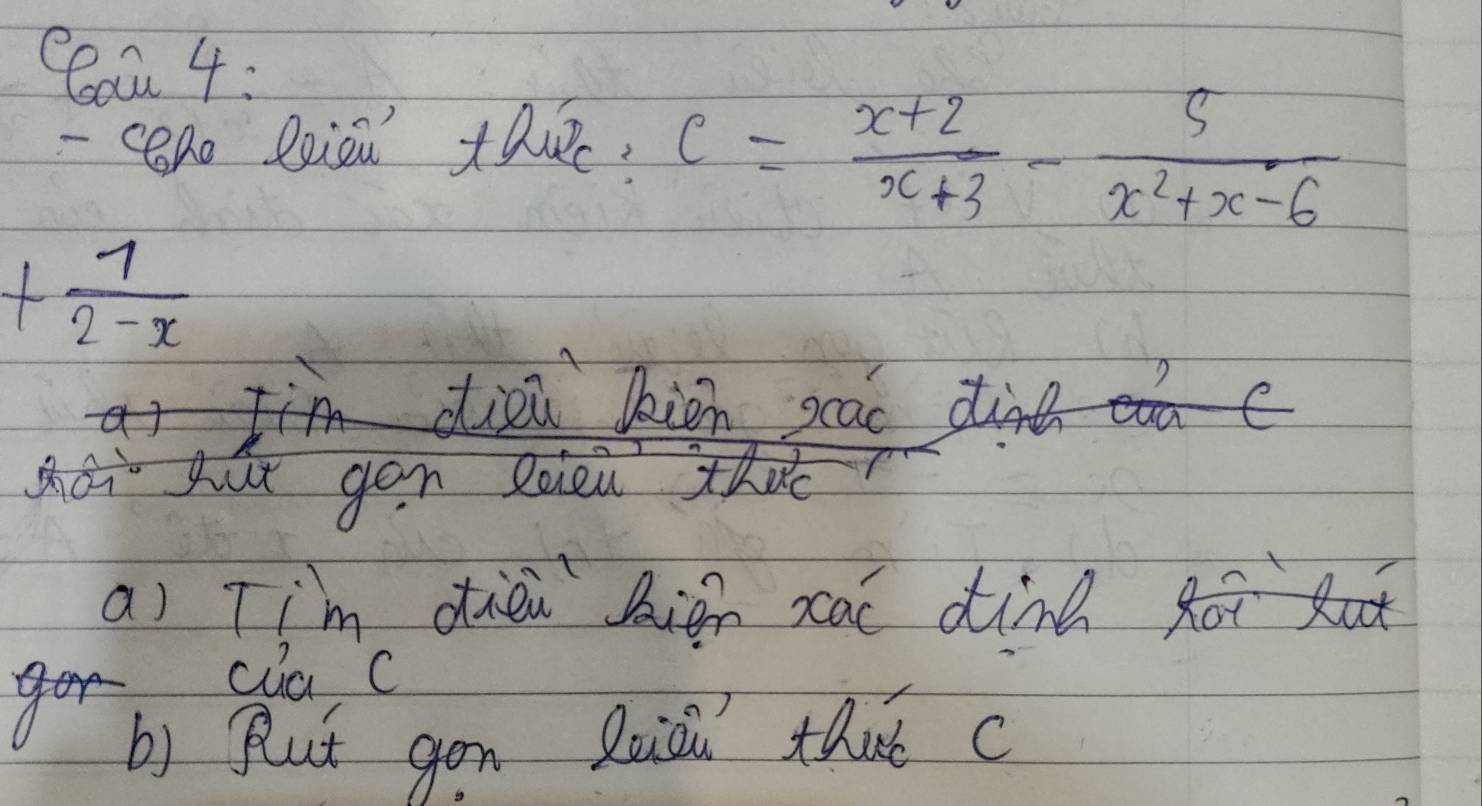 Câu 4:
- Cho biểu thức: C = \frac{x+2}{x+3} - \frac{5}{x²+x-6}
+ \frac{1}{2-x}
a) Tìm điều kiện xác định của C
rồi rút gọn biểu thức
a) Tìm điều kiện xác định rồi rút
gọn của C
b) Rút gọn biểu thức C